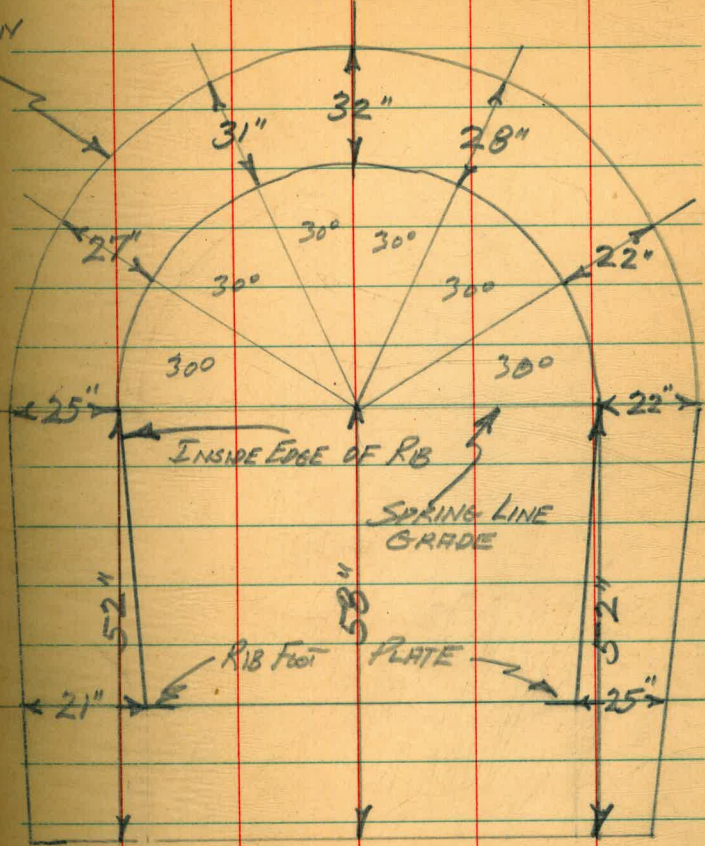 32"
31"
28"
30° 30°
27"
22"
30° 30°
30° 30°
25"
22"
INSIDE EDGE OF RIB
SPRING LINE
GRADE
52"
58"
52"
RIB FOOT PLATE
21"
25"